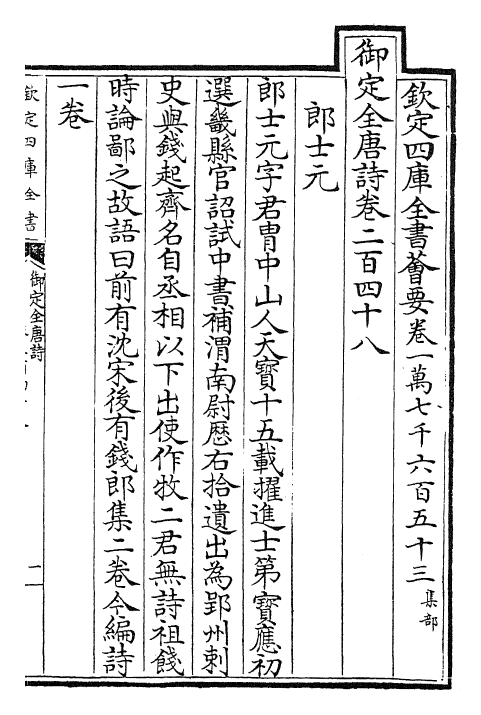 欽定四庫全書薈要卷一萬七千六百五十三 集部
御定全唐詩卷二百四十八
郎士元
郎士元字君胄中山人天寶十五載擢進士第寶應初
選畿縣官詔試中書補渭南尉歴右拾遺出為郢州刺
史與錢起齊名自丞相以下出使作牧二君無詩祖餞
時論鄙之故語曰前有沈宋後有錢郎集二卷今編詩
一卷
欽定四庫全書
御定全唐詩